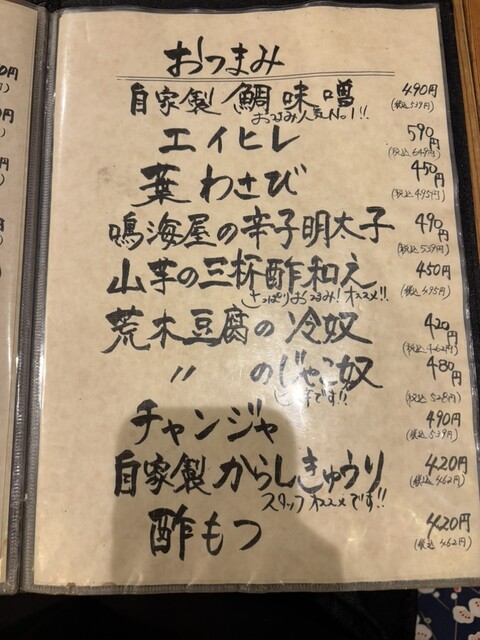 おつまみ
自家製 鯛味噌 490円
(税込539円)
おつまみ人気No1!!
エイヒレ 590円
(税込649円)
葉わさび 450円
(税込495円)
鳴海屋の辛子明太子 490円
(税込539円)
山芋の三杯酢和え 450円
(税込495円)
さっぱりおつまみ!オススメ!!
荒木豆腐の冷奴 420円
(税込462円)
〃 のじゃこ奴 480円
(税込528円)
です!!
チャンジャ 490円
(税込539円)
自家製からしきゅうり 420円
(税込462円)
スタッフオススメです!!
酢もつ 420円
(税込462円)